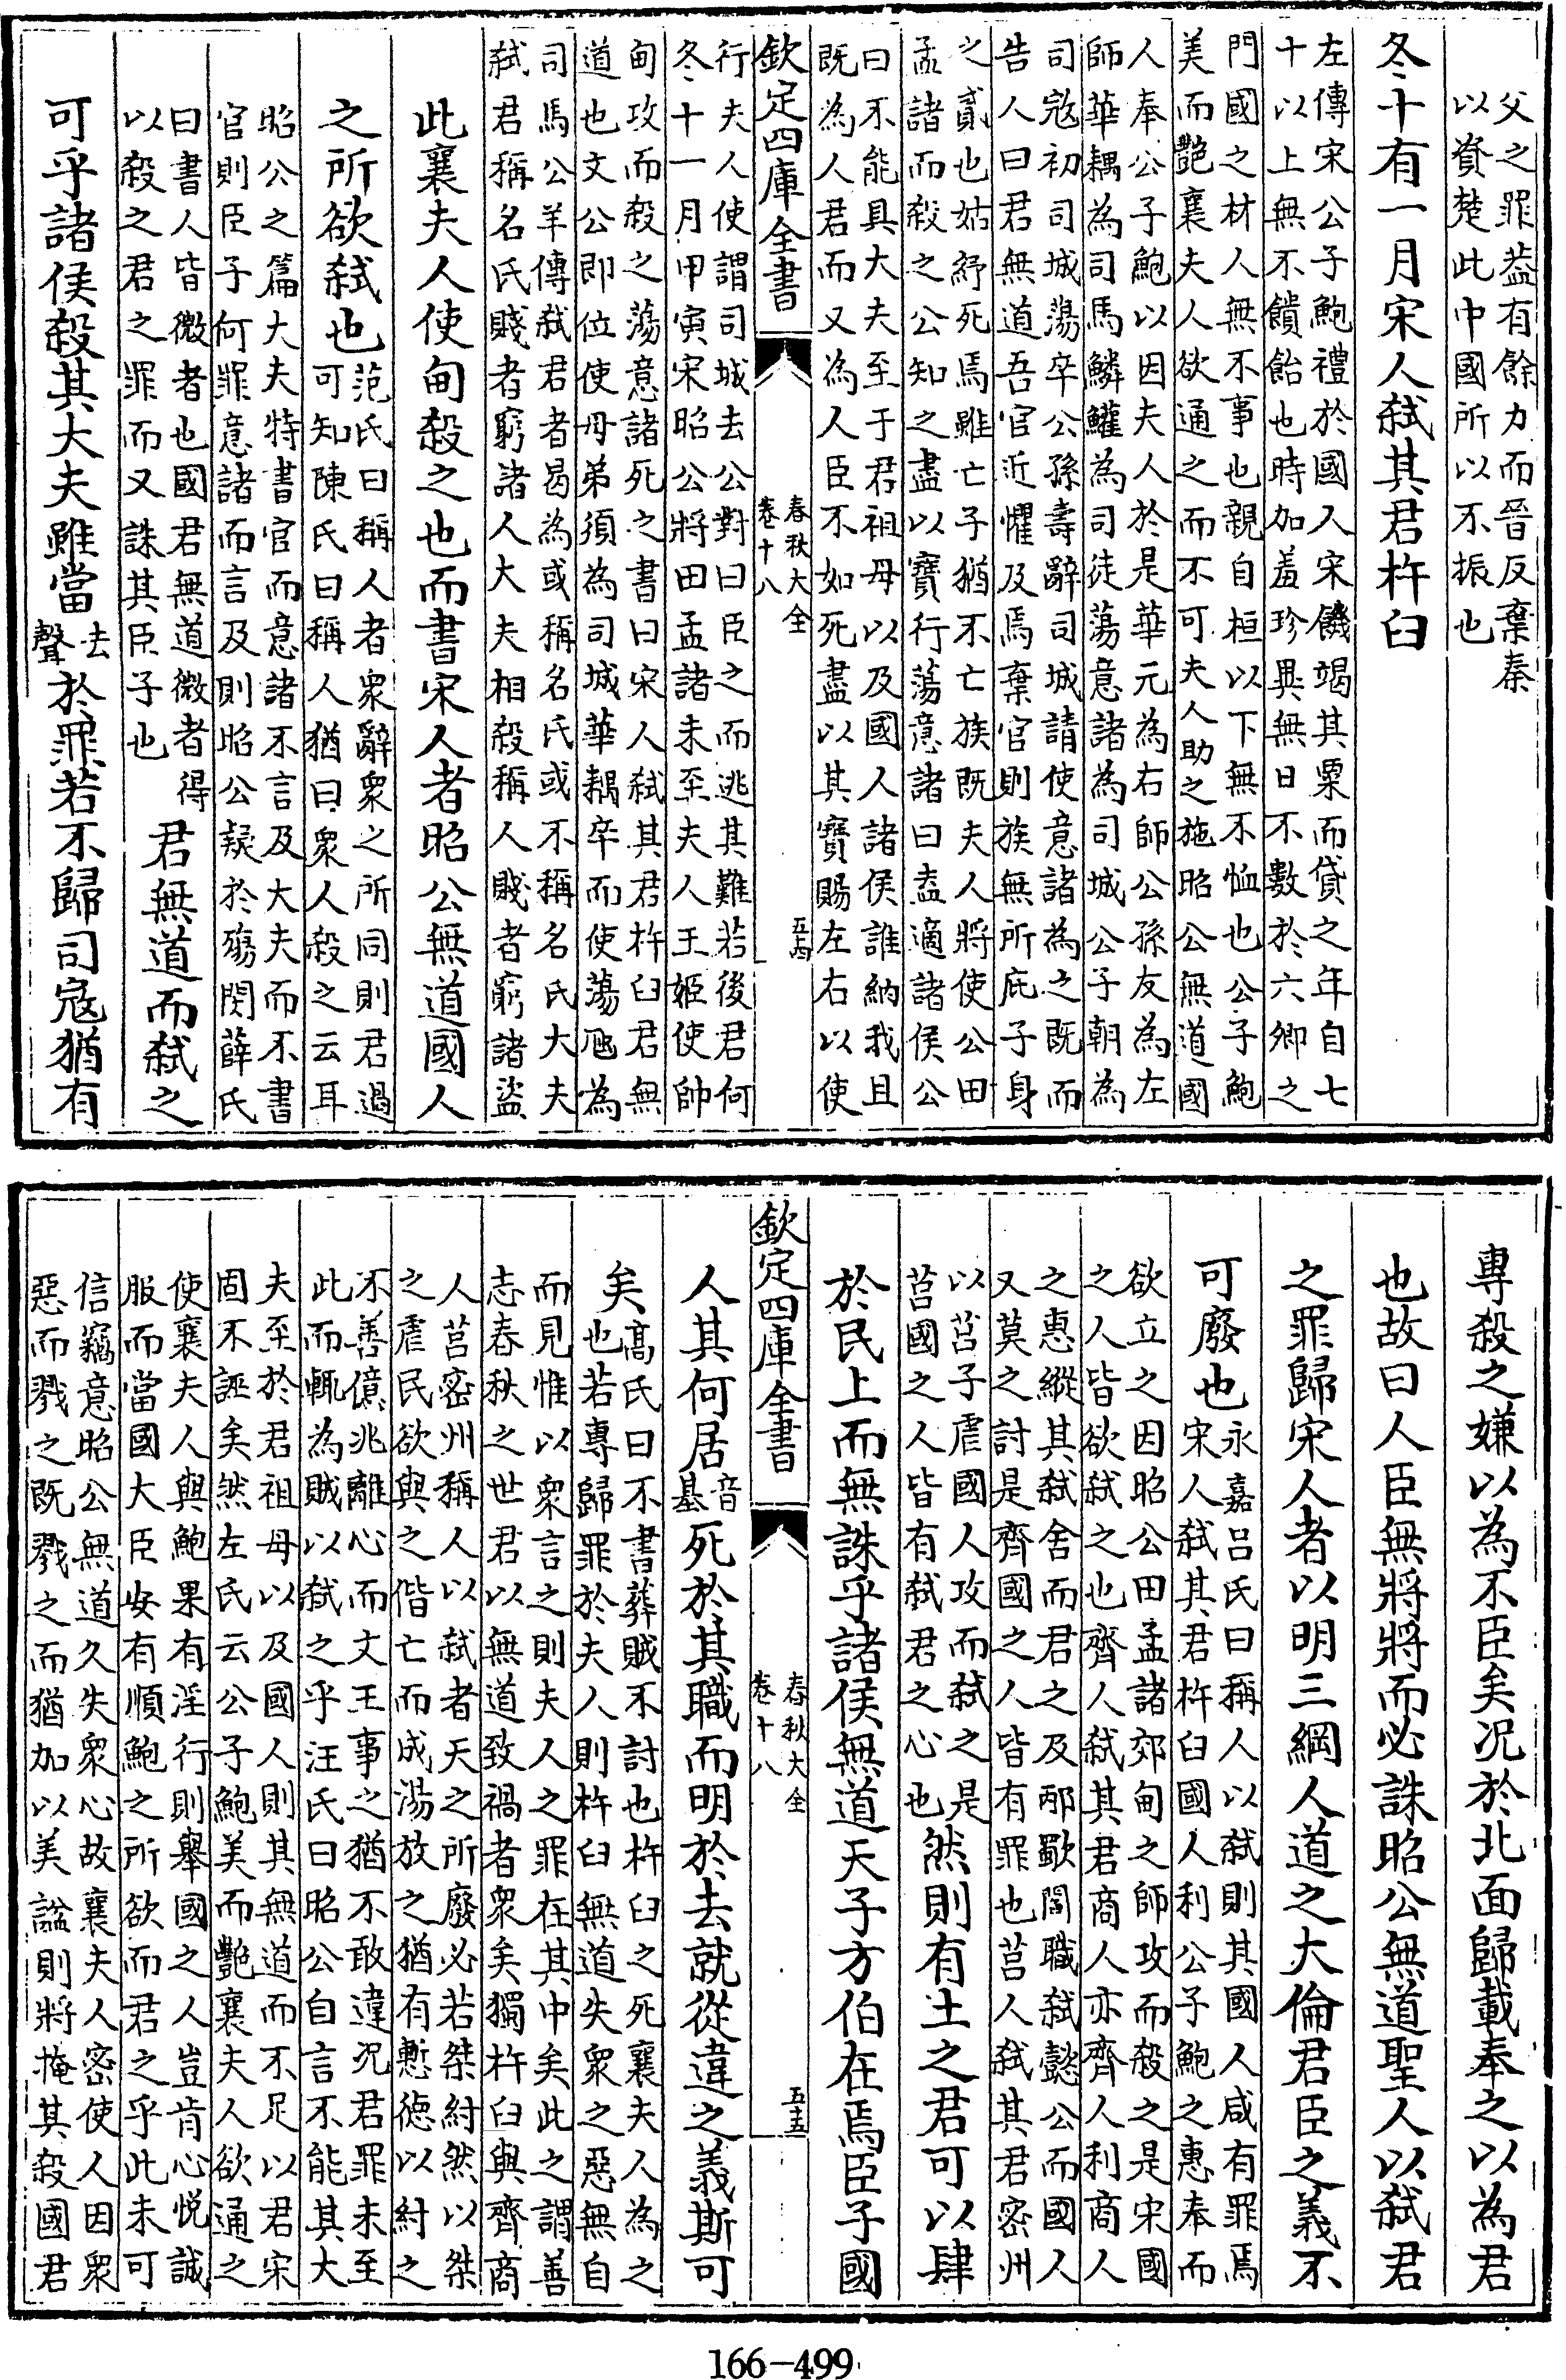 父之罪葢有餘力而晉反棄秦
以資楚此中國所以不振也
冬十有一月宋人弑其君杵臼
左傳宋公子鮑禮於國人宋饑竭其粟而貸之年自七
十以上無不饋飴也時加羞珍異無日不數於六卿之
門國之材人無不事也親自桓以下無不恤也公子鮑
美而艶襄夫人欲通之而不可夫人助之施昭公無道國
人奉公子鮑以因夫人於是華元為右師公孫友為左
師華耦為司馬鱗鱹為司徒蕩意諸為司城公子朝為
司寇初司城蕩卒公孫壽辭司城請使意諸為之既而
告人曰君無道吾官近懼及焉棄官則族無所庇子身
之貳也姑紓死焉雖亡子猶不亡族既夫人將使公田
孟諸而殺之公知之盡以寶行蕩意諸曰盍適諸侯公
曰不能其大夫至于君祖母以及國人諸侯誰納我且
既為人君而又為人臣不如死盡以其寶賜左右以使
欽定四庫全書
春秋大全
卷十八
五四
行夫人使謂司城去公對曰臣之而逃其難若後君何
冬十一月甲寅宋昭公將田孟諸未至夫人王姬使帥
甸攻而殺之蕩意諸死之書曰宋人弑其君杵臼君無
道也文公即位使母弟須為司城華耦卒而使蕩虺為
司馬公羊傳弑君者曷為或稱名氏或不稱名氏大夫
弑君稱名氏賤者窮諸人大夫相殺稱人賤者窮諸盜
此襄夫人使甸殺之也而書宋人者昭公無道國人
之所欲弑也
范氏曰稱人者衆辭衆之所同則君過
可知陳氏曰稱人猶曰衆人殺之云耳
昭公之篇大夫特書官而意諸不言及大夫而不書
官則臣子何罪意諸而言及則昭公疑於殤閔薛氏
曰書人皆微者也國君無道微者得
以殺之君之罪而又誅其臣子也
君無道而弑之
可乎諸侯殺其大夫雖當
去
聲
於罪若不歸司寇猶有
專殺之嫌以為不臣矣况於北面歸載奉之以為君
也故曰人臣無將將而必誅昭公無道聖人以弑君
之罪歸宋人者以明三綱人道之大倫君臣之義不
可廢也
永嘉呂氏曰稱人以弑則其國人咸有罪焉
宋人弑其君杵臼國人利公子鮑之惠奉而
欲立之因昭公田孟諸郊甸之師攻而殺之是宋國
之人皆欲弑之也齊人弑其君商人亦齊人利商人
之惠縱其弑舍而君之及邴歜閻職弑懿公而國人
又莫之討是齊國之人皆有罪也莒人弑其君密州
以莒子虐國人攻而弑之是
莒國之人皆有弑君之心也
然則有土之君可以肆
於民上而無誅乎諸侯無道天子方伯在焉臣子國
欽定四庫全書
春秋大全
卷十八
五五
人其何居
音
基
死於其職而明於去就從違之義斯可
矣
高氏曰不書葬賊不討也杵臼之死襄夫人為之
也若專歸罪於夫人則杵臼無道失衆之惡無自
而見惟以衆言之則夫人之罪在其中矣此之謂善
志春秋之世君以無道致禍者衆矣獨杵臼與齊商
人莒密州稱人以弑者天之所廢必若桀紂然以桀
之虐民欲與之偕亡而成湯放之猶有慙德以紂之
不善億兆離心而文王事之猶不敢違况君罪未至
此而輒為賊以弑之乎汪氏曰昭公自言不能其大
夫至於君祖母以及國人則其無道而不足以君宋
固不誣矣然左氏云公子鮑美而艶襄夫人欲通之
使襄夫人與鮑果有淫行則舉國之人豈肯心悅誠
服而當國大臣安有順鮑之所欲而君之乎此未可
信竊意昭公無道久失衆心故襄夫人密使人因衆
惡而戮之既戮之而猶加以美諡則將掩其殺國君
166-499